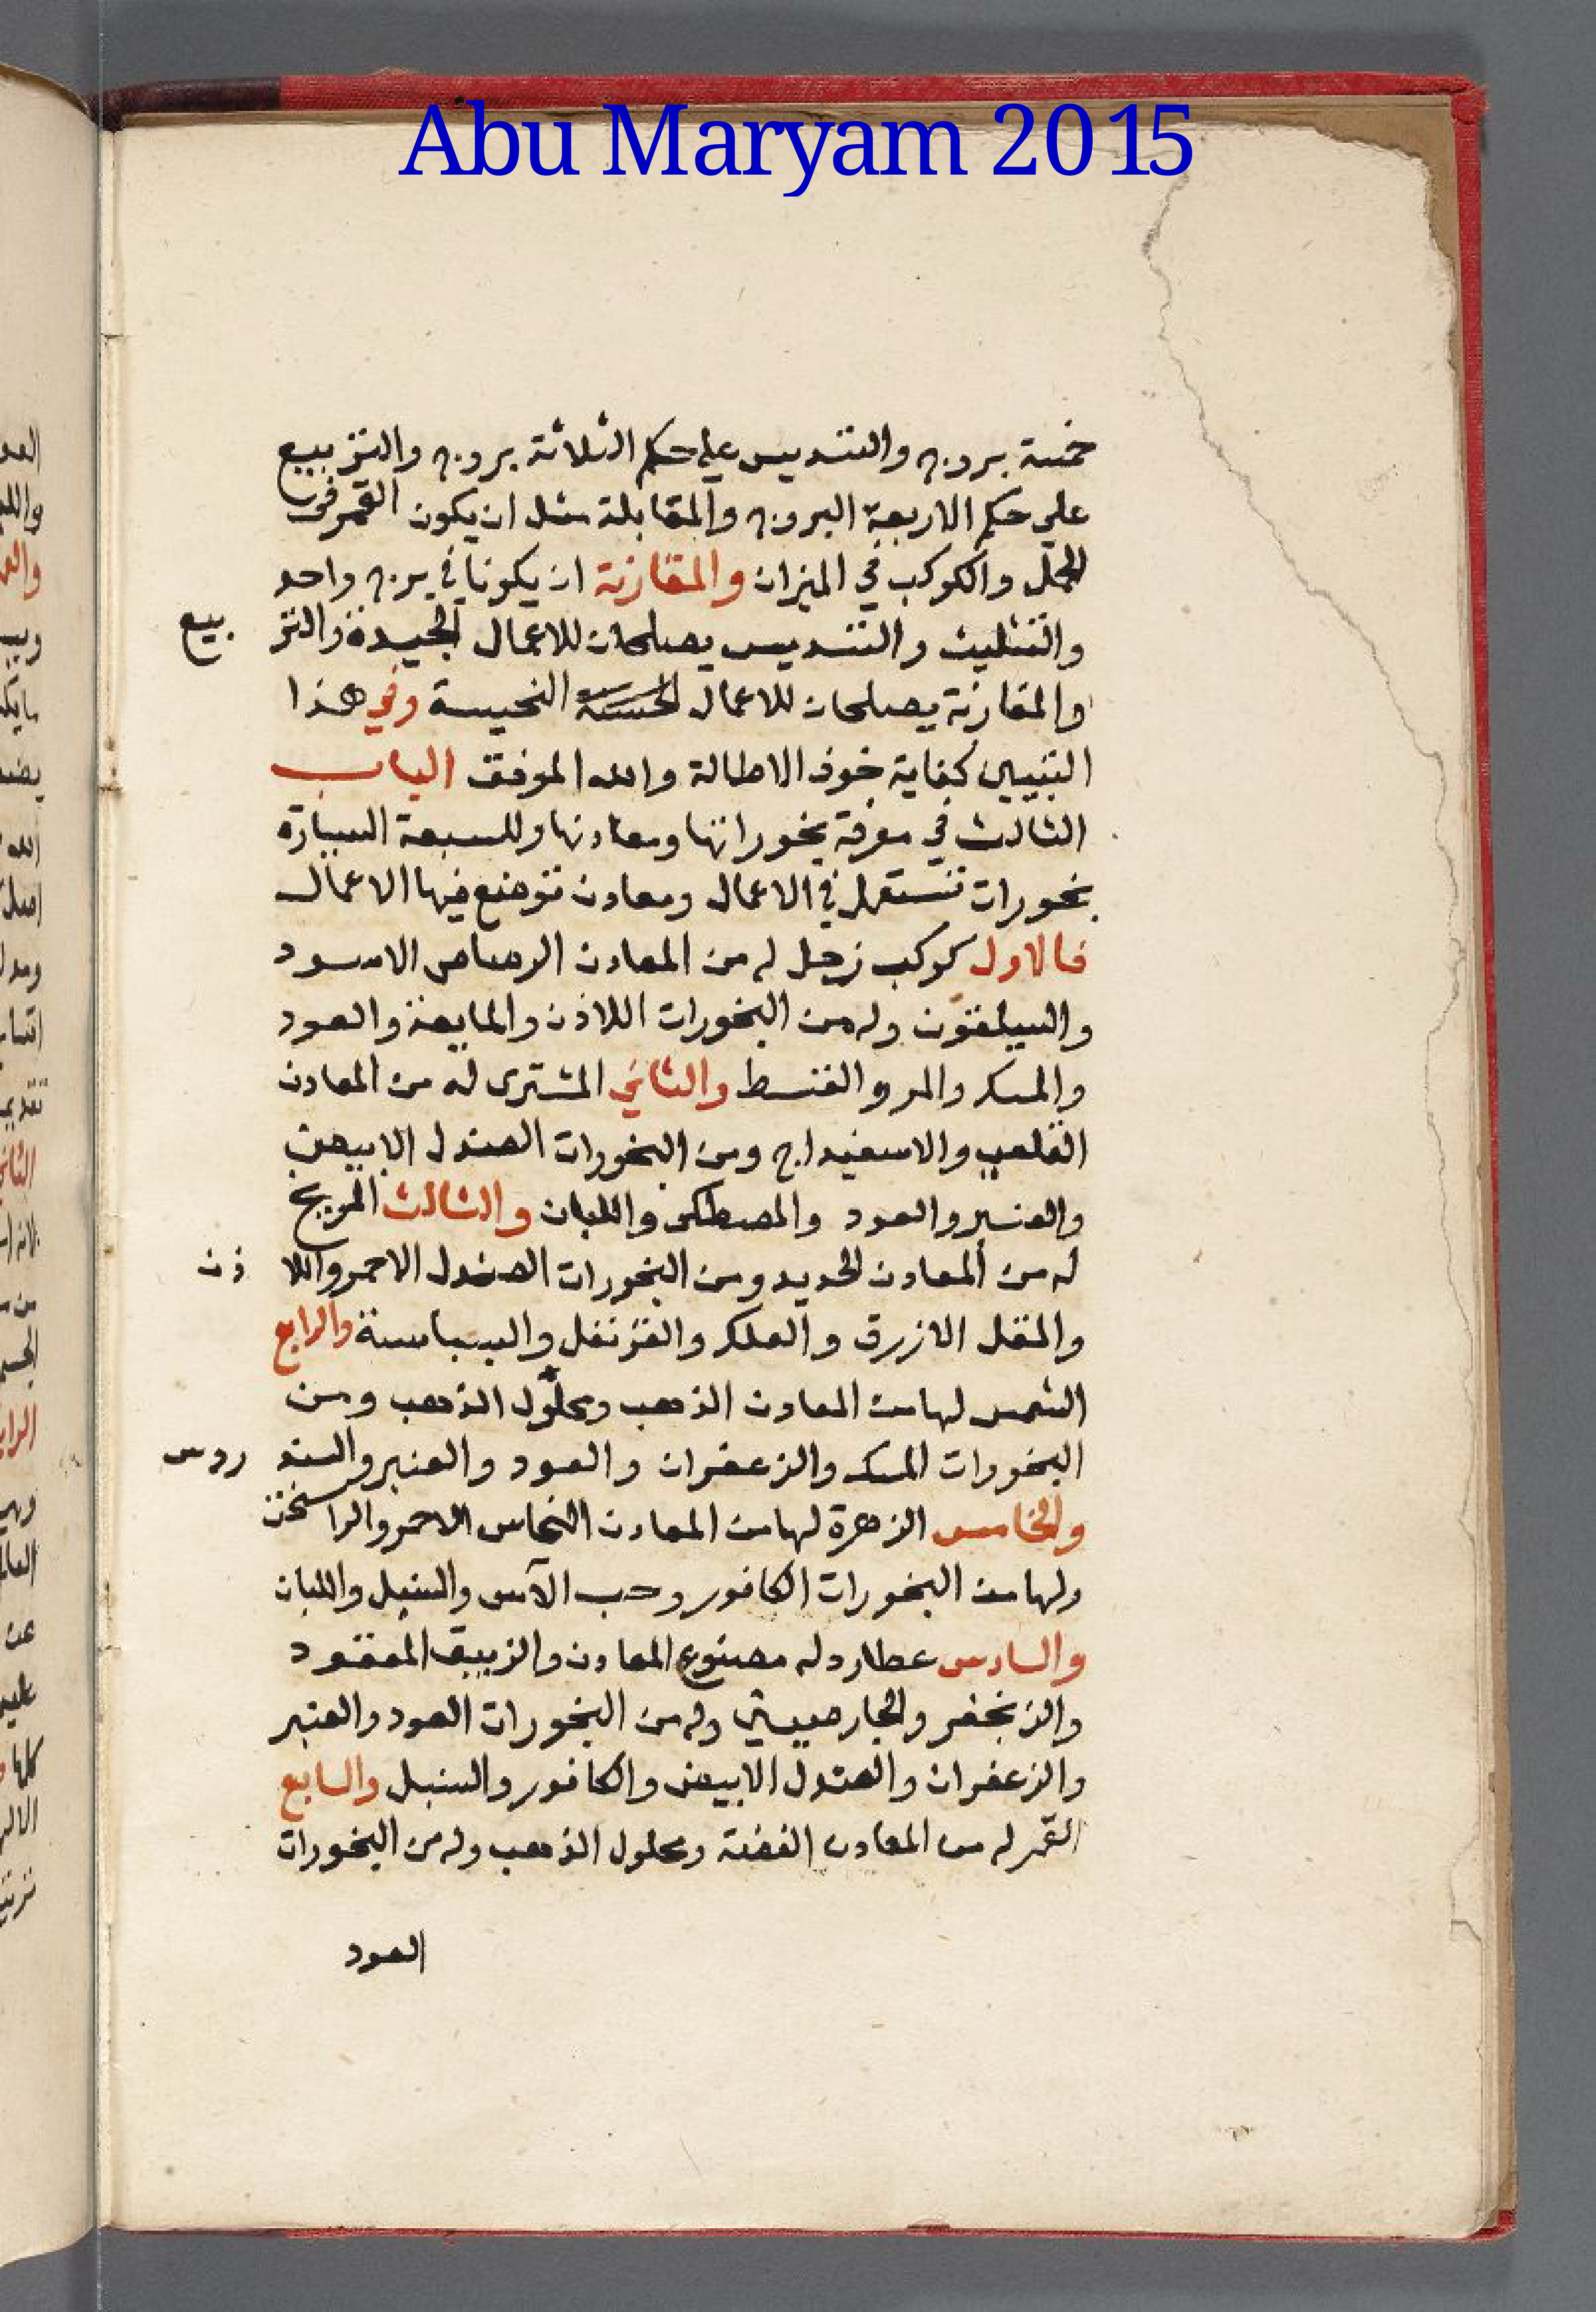 Abu Maryam 2015
خمسة بروج والتسديس علي حكم الثلاثة بروج والتربيع
علي حكم الاربعة البروج والمقابلة مثل ان يكون القمر في
الحمل والكوكب في الميزان والمقارنة ان يكونا في برج واحد
والتثليث والتسديس يصلحان للاعمال الجيدة والتر بيع
والمقارنة يصلحان للاعمال النحيسة وفي هذا
التبيين كفاية خوف الاطالة والله الموفق الباب
الثالث في معرفة بخوراتها ومعادنها وللسبعة السيارة
بخورات تستعمل في الاعمال ومعادن توضع فيها الاعمال
فالاول كوكب زحل له من المعادن الرصاص الاسود
والسيلقون وله من البخورات اللاذن والمايعة والعود
والمسك والمر والقسط والثاني المشترى له من المعادن
القلعي والاسفيداج ومن البخورات الصندل الابيض
والعنبر والعود والمصطكى واللبان والثالث المريخ
له من المعادن الحديد ومن البخورات الصندل الاحمر واللا ذن
والمقل الازرق والعلك والقرنفل والبسباسة والرابع
الشمس لها من المعادن الذهب ومحلول الذهب ومن
البخورات المسك والزعفران والعود والعنبر والسند روس
والخامس الزهرة لها من المعادن النحاس الاحمر والراسخت
ولها من البخورات الكافور وحب الآس والسنبل واللبان
والسادس عطارد له مصنوع المعادن والزيبق المعقود
والزنجفر والخارصيني وله من البخورات العود والعنبر
والزعفران والصندل الابيض والكافور والسنبل والسابع
القمر له من المعادن الفضة ومحلول الذهب وله من البخورات
العود